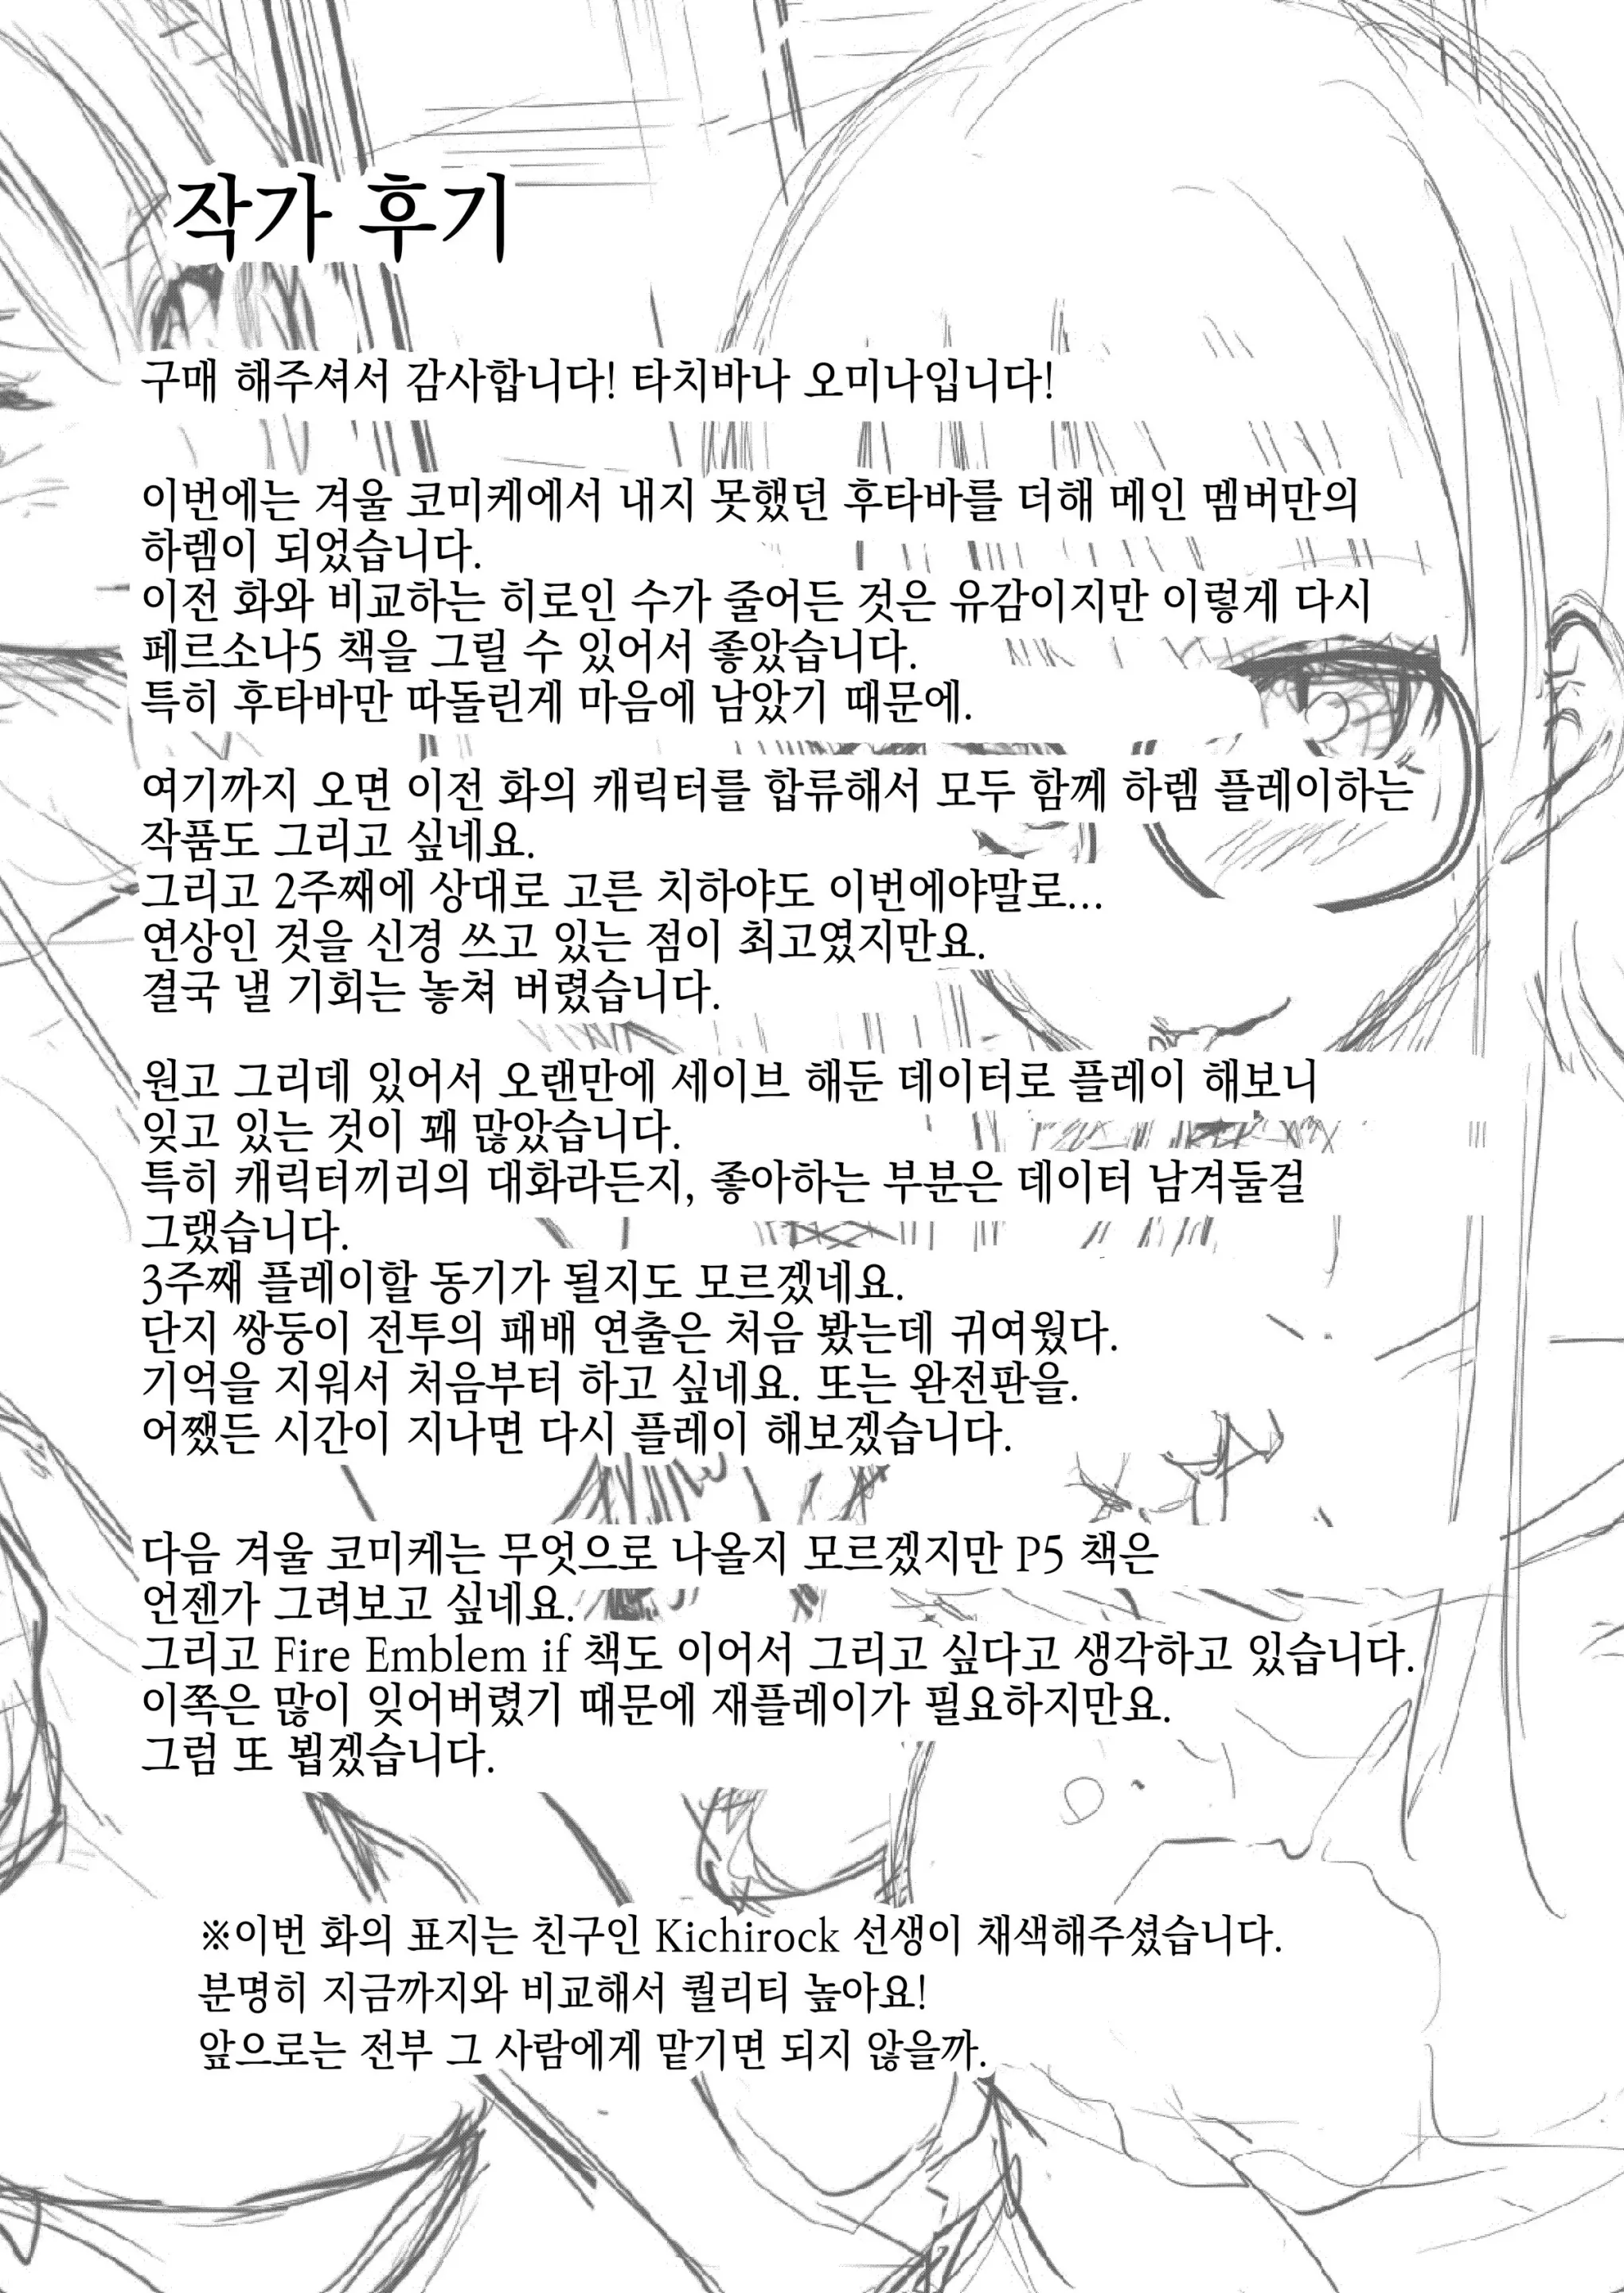 작가 후기
구매 해주셔서 감사합니다! 타치바나 오미나입니다!
이번에는 겨울 코미케에서 내지 못했던 후타바를 더해 메인 멤버만의
하렘이 되었습니다.
이전 화와 비교하는 히로인 수가 줄어든 것은 유감이지만 이렇게 다시
페르소나5 책을 그릴 수 있어서 좋았습니다.
특히 후타바만 따돌린게 마음에 남았기 때문에.
여기까지 오면 이전 화의 캐릭터를 합류해서 모두 함께 하렘 플레이하는
작품도 그리고 싶네요.
그리고 2주째에 상대로 고른 치하야도 이번에야말로...
연상인 것을 신경 쓰고 있는 점이 최고였지만요.
결국 낼 기회는 놓쳐 버렸습니다.
원고 그리데 있어서 오랜만에 세이브 해둔 데이터로 플레이 해보니
잊고 있는 것이 꽤 많았습니다.
특히 캐릭터끼리의 대화라든지, 좋아하는 부분은 데이터 남겨둘걸
그랬습니다.
3주째 플레이할 동기가 될지도 모르겠네요.
단지 쌍둥이 전투의 패배 연출은 처음 봤는데 귀여웠다.
기억을 지워서 처음부터 하고 싶네요. 또는 완전판을.
어쨌든 시간이 지나면 다시 플레이 해보겠습니다.
다음 겨울 코미케는 무엇으로 나올지 모르겠지만 P5 책은
언젠가 그려보고 싶네요.
그리고 Fire Emblem if 책도 이어서 그리고 싶다고 생각하고 있습니다.
이쪽은 많이 잊어버렸기 때문에 재플레이가 필요하지만요.
그럼 또 뵙겠습니다.
※이번 화의 표지는 친구인 Kichirock 선생이 채색해주셨습니다.
분명히 지금까지와 비교해서 퀄리티 높아요!
앞으로는 전부 그 사람에게 맡기면 되지 않을까.